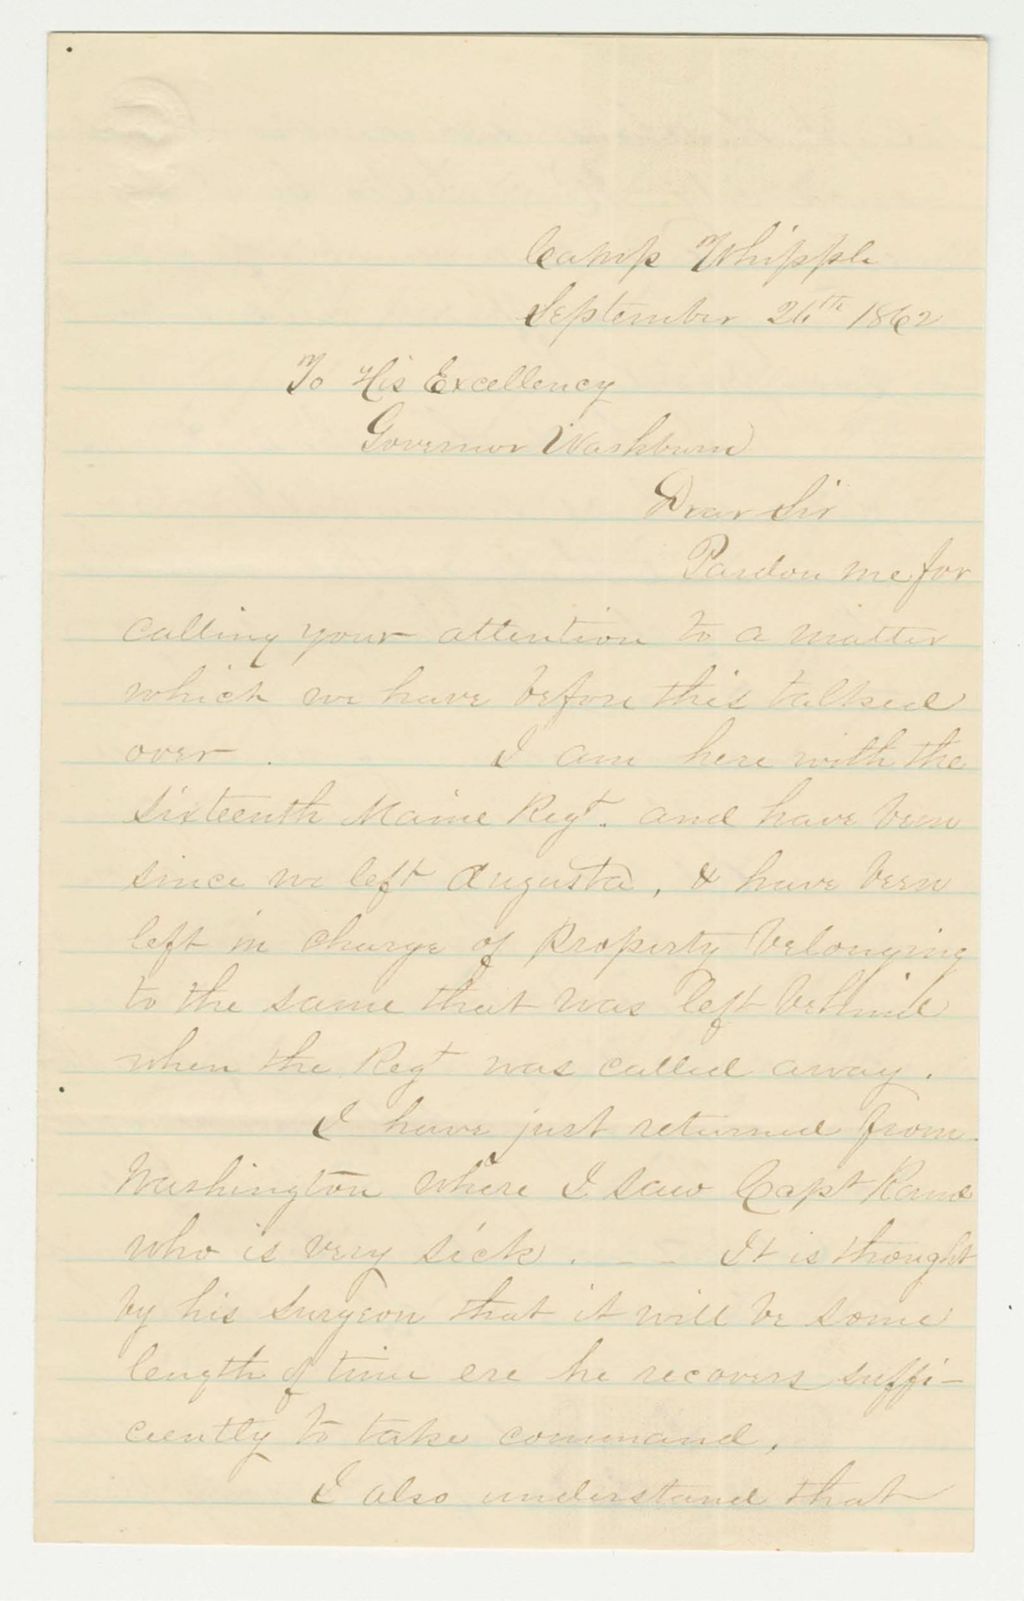 Camp Whipple
September 26th 1862
To His Excellency
Governor Washburn
Dear Sir
Pardon me for
calling your attention to a matter
which we have before this talked
over. I am here with the
Sixteenth Maine Regt. and have been
since we left Augusta, & have been
left in charge of Property belonging
to the same that was left behind
when the Regt was called away.
I have just returned from
Washington where I saw Capt
who is very sick. - - It is thought
by his Surgeon that it will be some
length of time ere he recovers suffi-
ciently to take command.
I also understand that